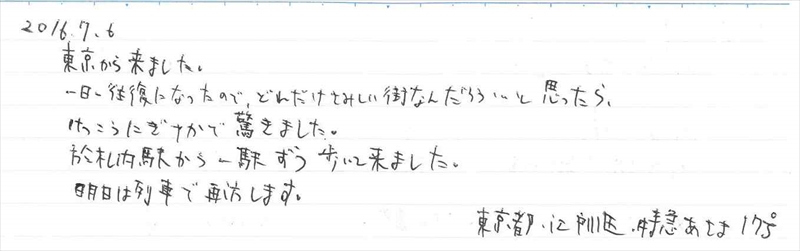 2016.7.6
東京から来ました。
一日一往復になったので、どれだけさみしい街なんだろう…と思ったら、
けっこうにぎやかで驚きました。
於札内駅から一駅ずつ歩いて来ました。
明日は列車で再訪します。
東京都・江戸川区 特急あさま17号